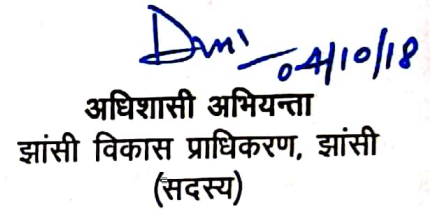 04/10/18
अधिशासी अभियन्ता
झांसी विकास प्राधिकरण, झांसी
(सदस्य)